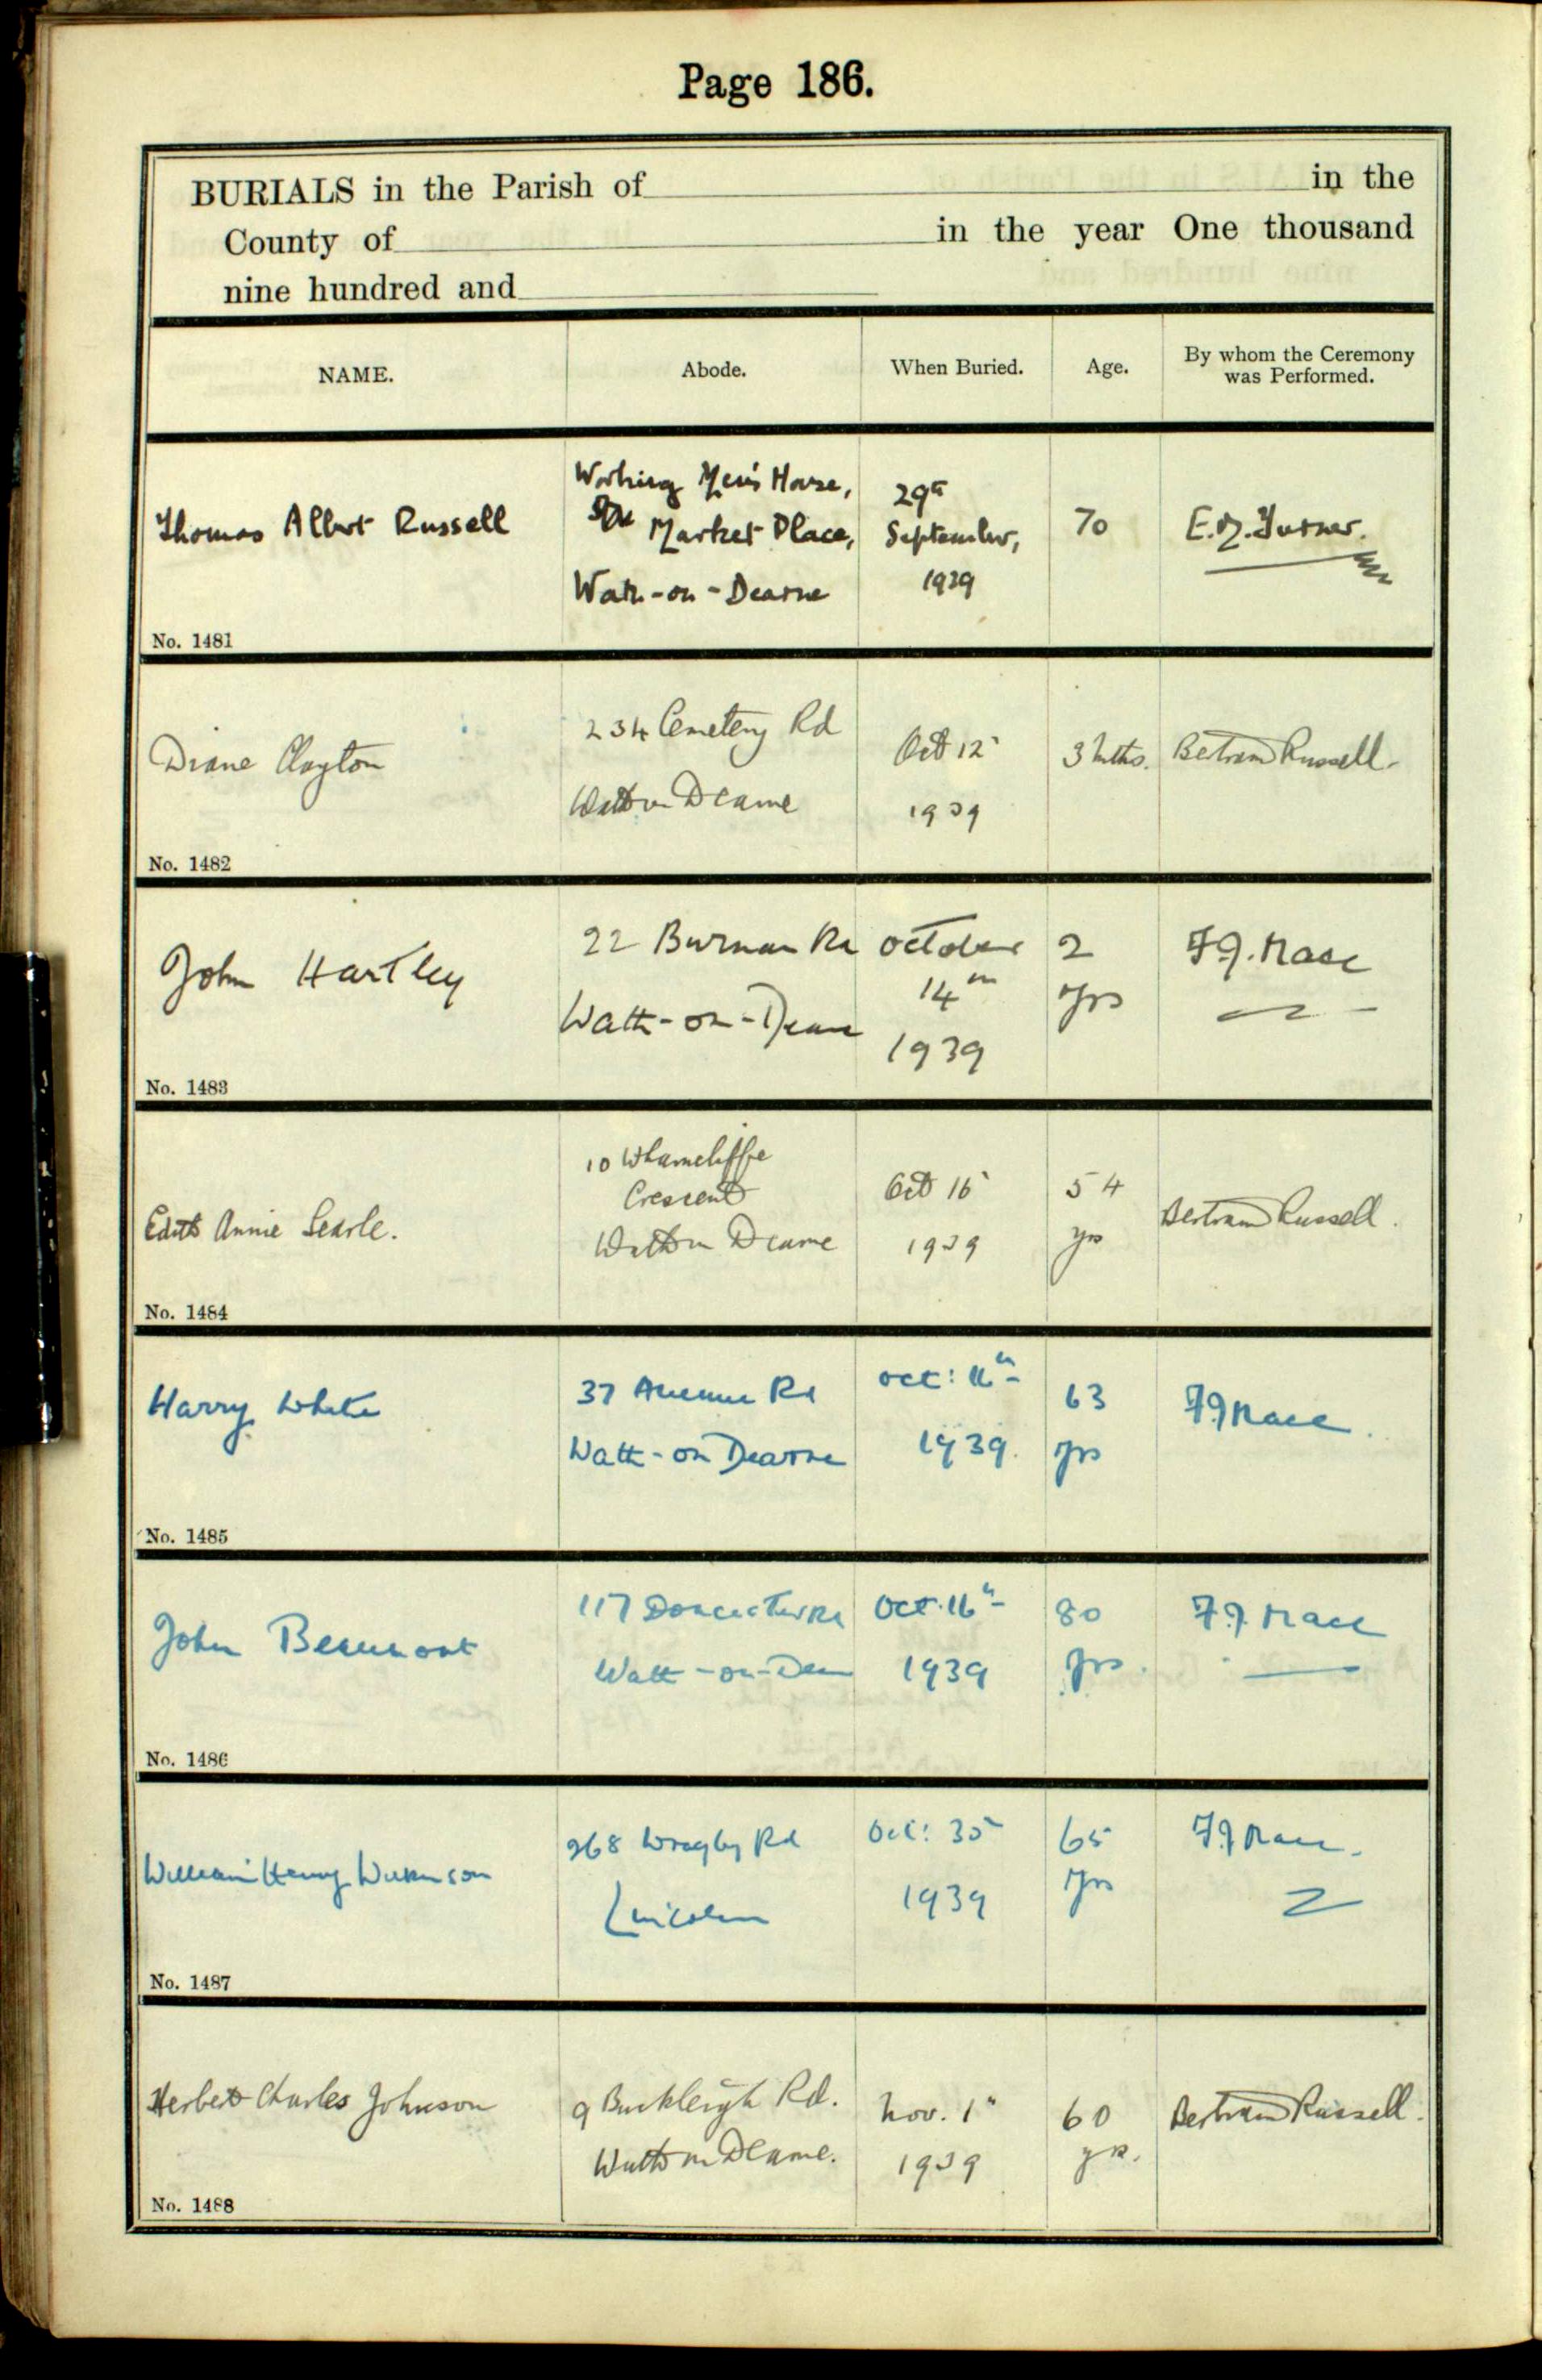 Page 186.
BURIALS in the Parish of in the
County of in the year One thousand
nine hundred and
NAME. Abode. When Buried. Age. By whom the Ceremony was Performed.
Thomas Albert Russell
Working Men's Home,
Market Place,
Wath-on-Dearne
29th
September,
1939
70
E.M. Turner.
No. 1481
Diane Clayton
234 Cemetery Rd
Wath on Dearne
Oct 12
1939
3 mths.
Bertram Russell.
No. 1482
John Hartley
22 Burman Rd
Wath-on-Dearne
October
14th
1939
2
yrs
F.J. Race
No. 1483
Edith Annie Searle.
10 Wharncliffe
Crescent
Wath on Dearne
Oct 16
1939
54
yrs
Bertram Russell.
No. 1484
Harry White
37 Avenue Rd
Wath-on Dearne
Oct: 16th
1939.
63
yrs
F J Race
No. 1485
John Beaumont
117 Doncaster Rd
Wath-on-Dearne
Oct. 16th
1939
80
yrs.
F.J. Race
No. 1486
William Henry Wilkinson
268 Wragby Rd
Lincoln
Oct: 30
1939
65
yrs
F J Race.
No. 1487
Herbert Charles Johnson
9 Buckleigh Rd.
Wath on Dearne.
Nov. 1st
1939
60
yrs.
Bertram Russell.
No. 1488